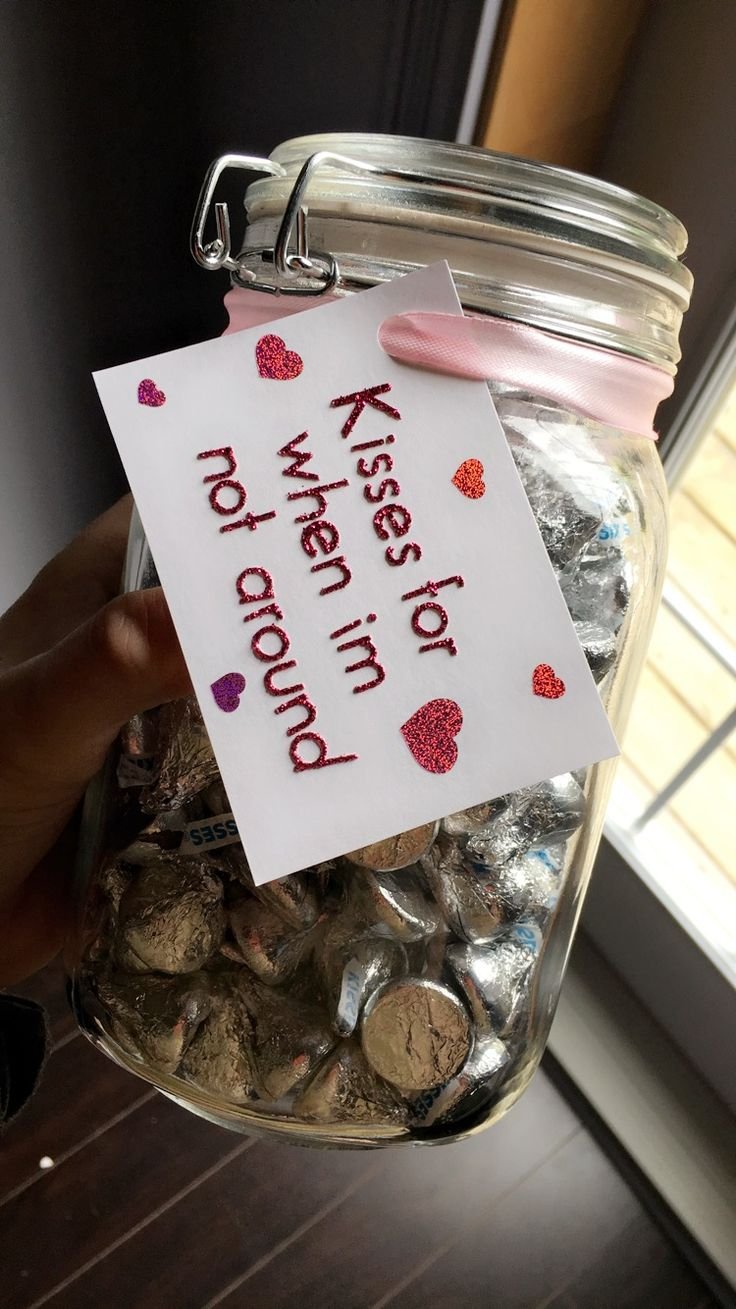 Kisses for
when im
not around
SSES
KISSES